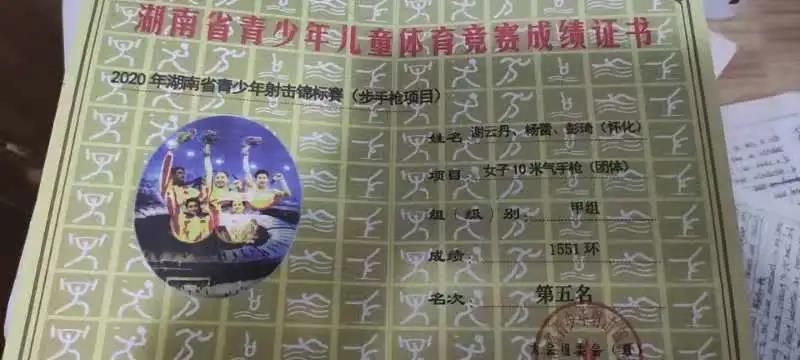 湖南省青少年儿童体育竞赛成绩证书
2020年湖南省青少年射击锦标赛（步手枪项目）
姓名：谢云丹、杨蕾、彭琦（怀化）
项目：女子10米气手枪（团体）
组（级）别：甲组
成绩：1551环
名次：第五名
大会组委会（章）